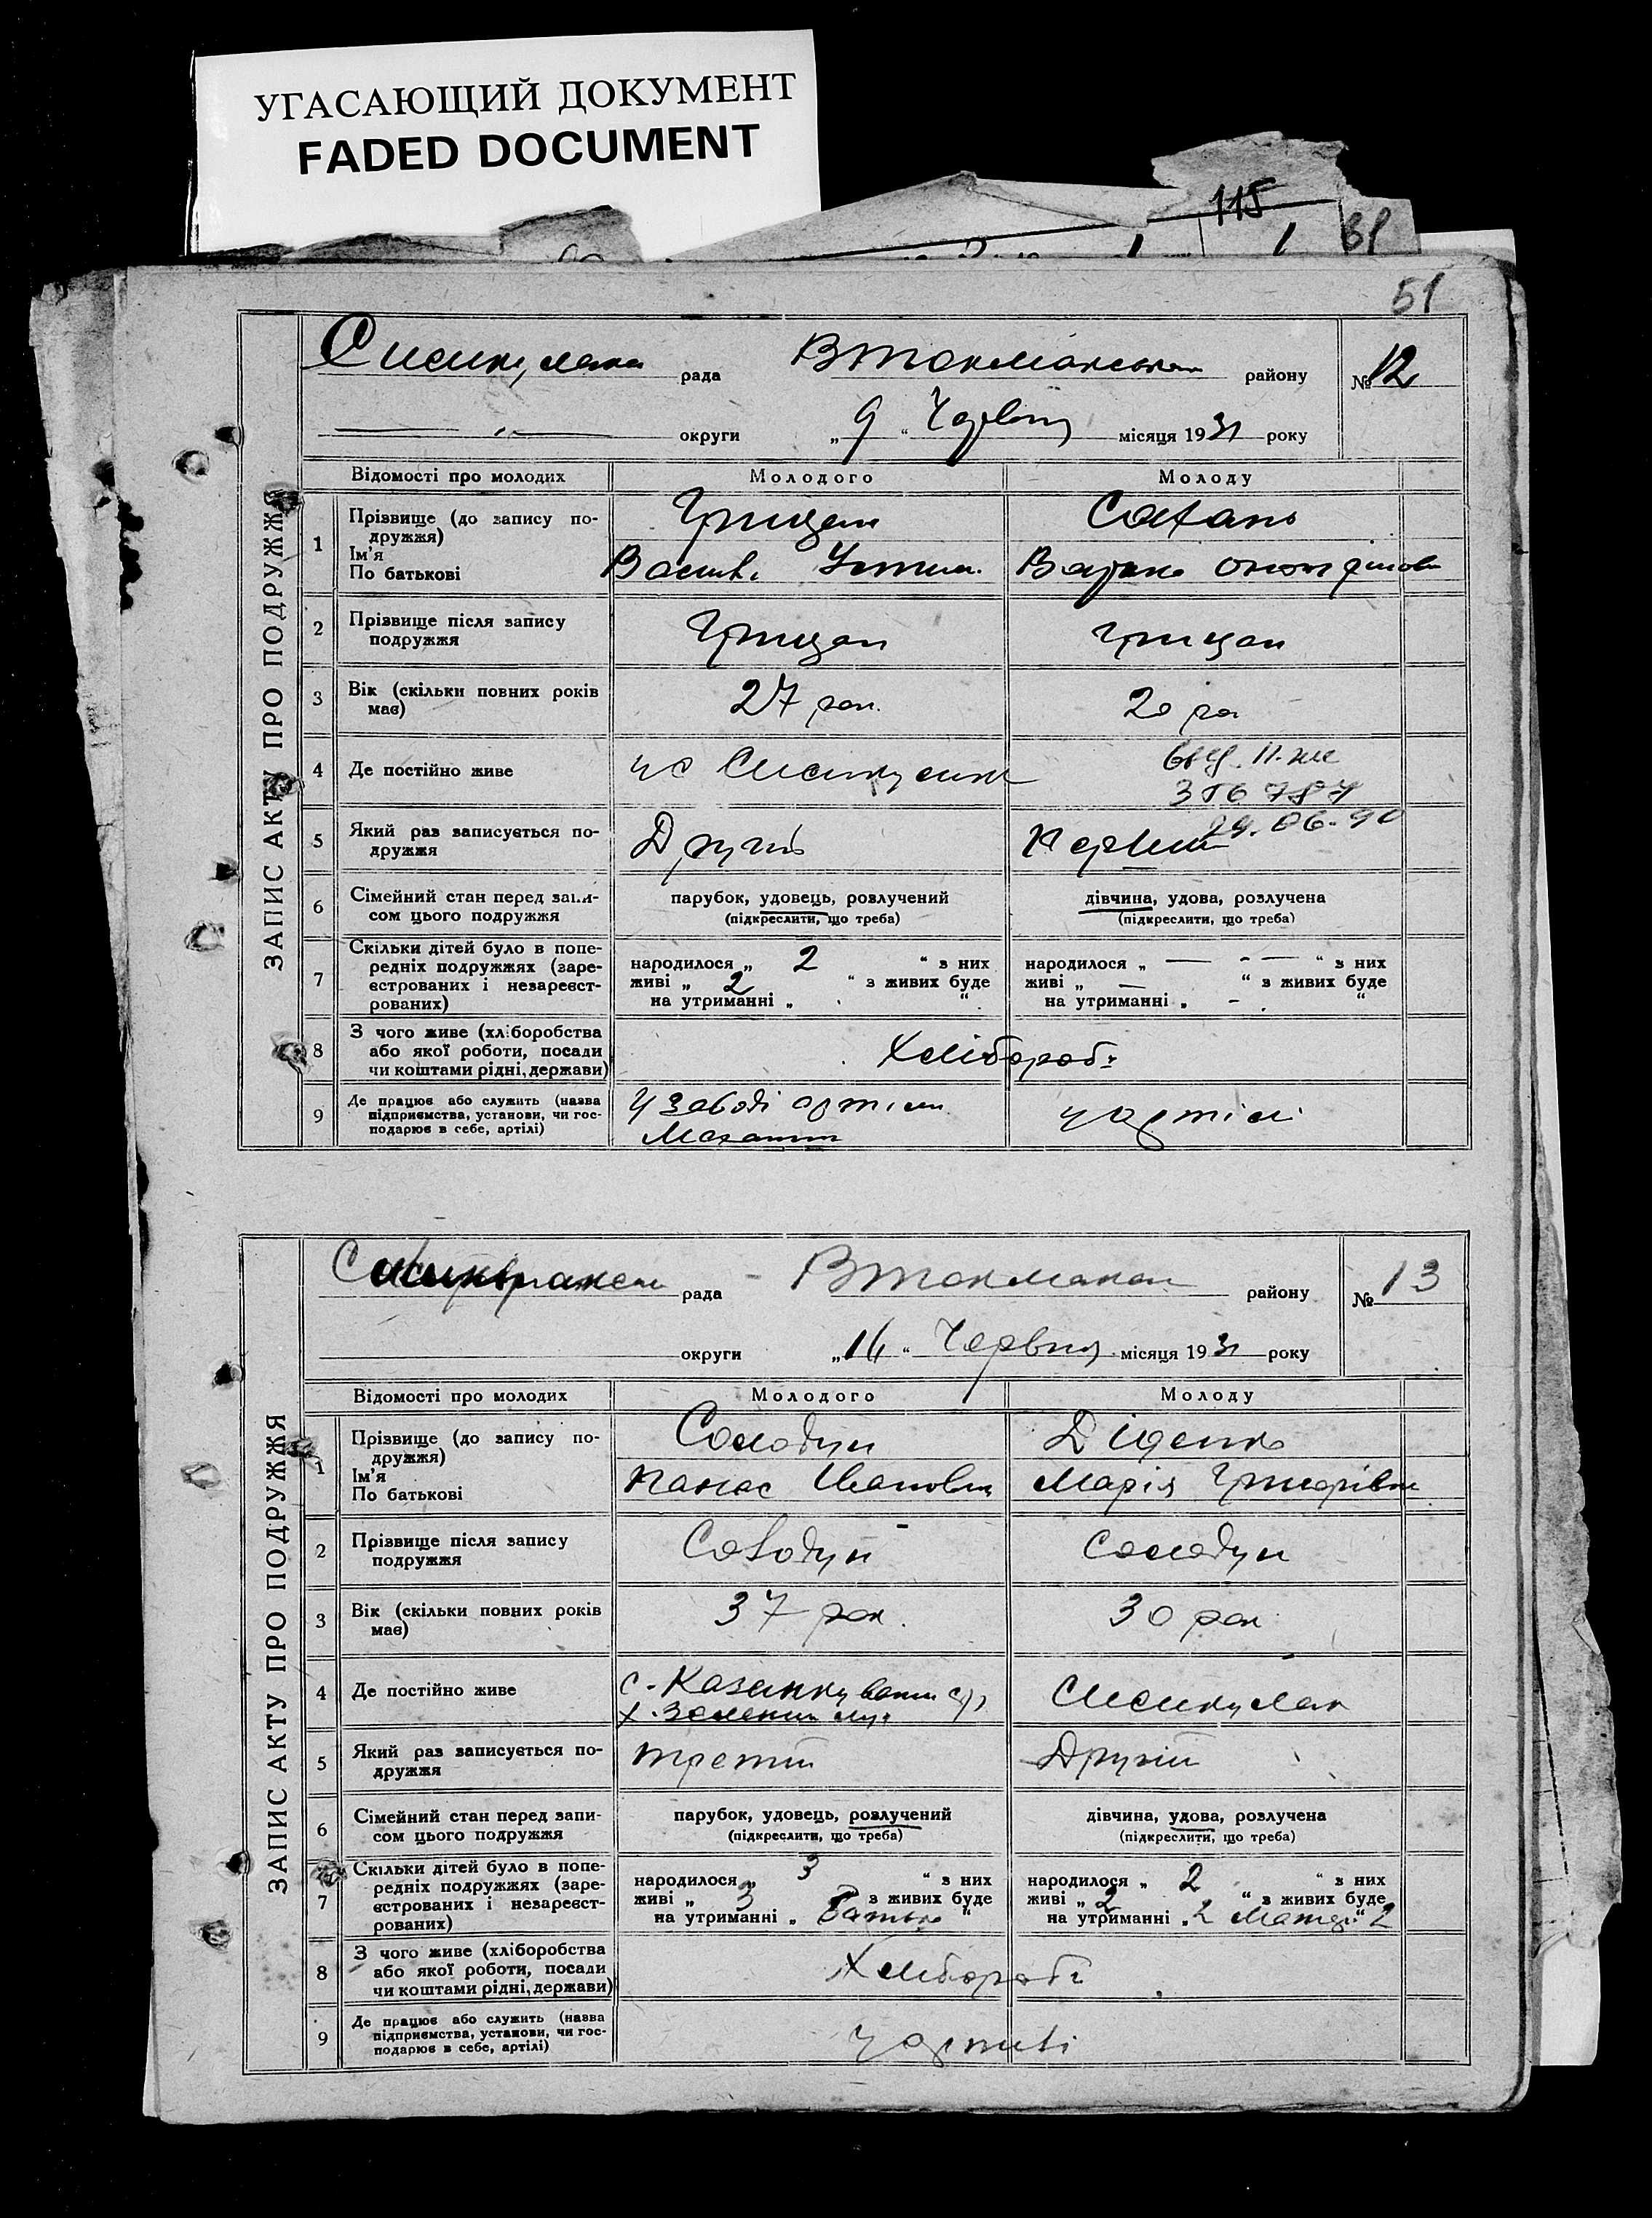 УГАСАЮЩИЙ ДОКУМЕНТ
FADED DOCUMENT
115
51
ЗАПИС АКТУ ПРО ПОДРУЖЖЯ
рада района району № 12
округи „ 9 “ Червня місяця 1931 року
Відомості про молодих Молодого Молоду
1 Прізвище (до запису по-
дружжя)
Ім’я
По батькові
Грицан
2 Прізвище після запису
подружжя
Грицан Грицан
3 Вік (скільки повних років
має)
27 рок. 20 ро
4 Де постійно живе
5 Який раз записується по-
дружжя
29.06.90
6 Сімейний стан перед запи-
сом цього подружжя
парубок, удовець, розлучений
(підкреслити, що треба)
дівчина, удова, розлучена
(підкреслити, що треба)
7 Скільки дітей було в попе-
редніх подружжях (заре-
єстрованих і незареєст-
рованих)
народилося „ 2 “ з них
живі „ 2 “ з живих буде
на утриманні „ “
народилося „ — “ з них
живі „ — “ з живих буде
на утриманні „ - “
8 З чого живе (хліборобства
або якої роботи, посади
чи коштами рідні, держави)
Хлібороб.
9 Де працює або служить (назва
підприємства, установи, чи гос-
подарює в себе, артілі)
у артілі
ЗАПИС АКТУ ПРО ПОДРУЖЖЯ
рада району № 13
округи „ “ Червня місяця 1931 року
Відомості про молодих Молодого Молоду
1 Прізвище (до запису по-
дружжя)
Ім’я
По батькові
Солодун Діденко
Панас Іванович Марія Григорівн
2 Прізвище після запису
подружжя
Солодун Солодун
3 Вік (скільки повних років
має)
37 рок. 30 рок
4 Де постійно живе
5 Який раз записується по-
дружжя
третій Другий
6 Сімейний стан перед запи-
сом цього подружжя
парубок, удовець, розлучений
(підкреслити, що треба)
дівчина, удова, розлучена
(підкреслити, що треба)
7 Скільки дітей було в попе-
редніх подружжях (заре-
єстрованих і незареєст-
рованих)
народилося „ 3 “ з них
живі „ 3 “ з живих буде
на утриманні „ батька “
народилося „ 2 “ з них
живі „ 2 “ з живих буде
на утриманні „ 2 “ 2
8 З чого живе (хліборобства
або якої роботи, посади
чи коштами рідні, держави)
Хлібороб
9 Де працює або служить (назва
підприємства, установи, чи гос-
подарює в себе, артілі)
у артілі